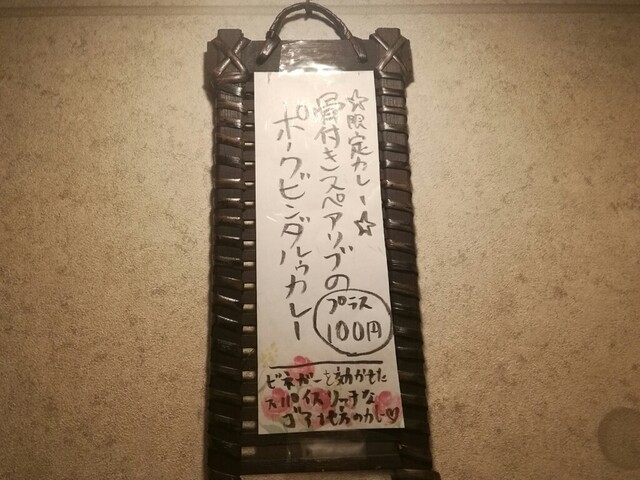 ☆限定カレー☆
骨付きスペアリブの
ポークビンダルゥカレー
プラス
100円
ビネガーを効かせた
スパイスリッチな
ゴア地方のカレー♡